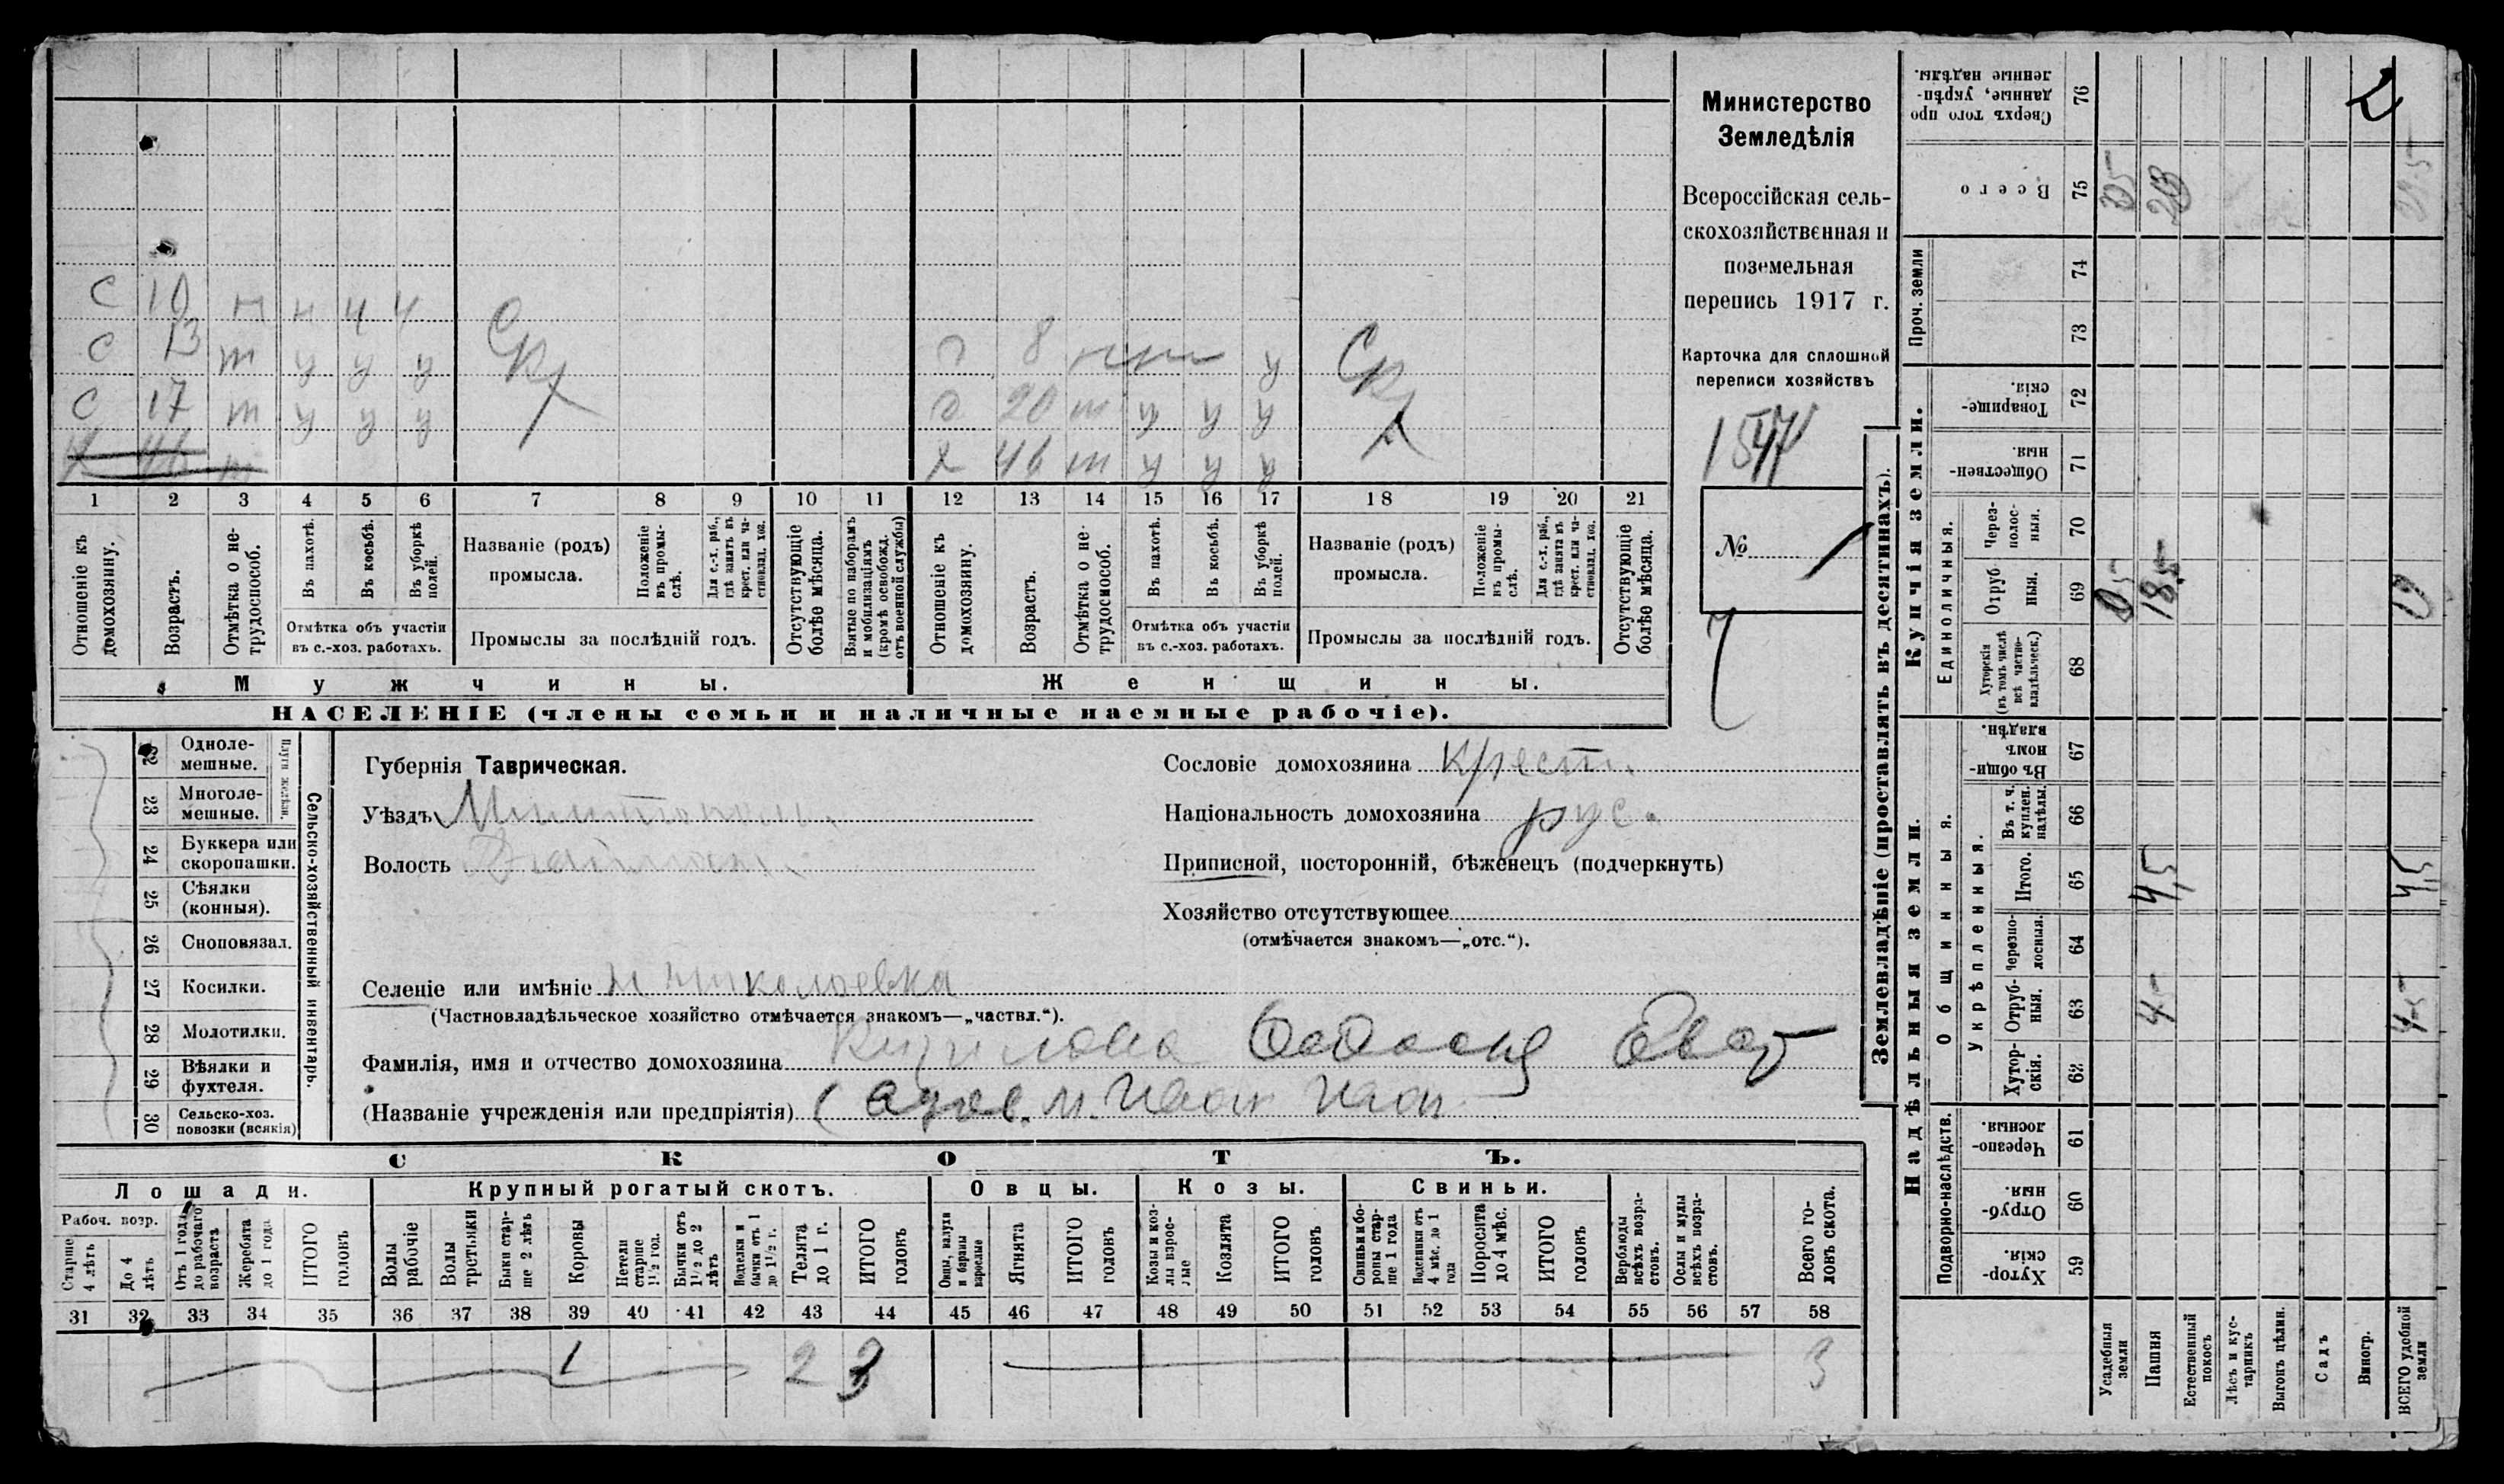 С 10 н н ч ч
С 13 т у у у
С 17 т у у у
Х 46 т
Скх
г 8 у
г 20 т у у у
х 46 т у у у
Скх
1 2 3 4 5 6 7 8 9 10 11 12 13 14 15 16 17 18 19 20 21
Отношеніе къ домохозяину.
Возрастъ.
Отмѣтка о не-
трудоспособ.
Въ пахотѣ.
Въ косьбѣ.
Въ уборкѣ полей.
Отмѣтка объ участіи
въ с.-хоз. работахъ.
Названіе (родъ)
промысла.
Положеніе
въ промы-
слѣ.
Для с.-х. раб.,
гдѣ занятъ въ
крест. или ча-
стновлад. хоз.
Промыслы за послѣдній годъ.
Отсутствующіе
болѣе мѣсяца.
Взятые по наборамъ
и мобилизаціямъ
(кромѣ освобожд.
отъ военной службы)
Отношеніе къ
домохозяину.
Возрастъ.
Отмѣтка о не-
трудоспособ.
Въ пахотѣ.
Въ косьбѣ.
Въ уборкѣ
полей.
Отмѣтка объ участіи
въ с.-хоз. работахъ.
Названіе (родъ)
промысла.
Положеніе
въ промы-
слѣ.
Для с.-х. раб.,
гдѣ занятъ въ
крест. или ча-
стновлад. хоз.
Промыслы за послѣдній годъ.
Отсутствующіе
болѣе мѣсяца.
Мужчины.
Женщины.
НАСЕЛЕНІЕ (члены семьи и наличные наемные рабочіе).
Министерство
Земледѣлія
Всероссійская сель-
скохозяйственная и
поземельная
перепись 1917 г.
Карточка для сплошной
переписи хозяйствъ
№
22 Одноле-
мешные.
23 Многоле-
мешные.
Плуги желѣзн.
24 Буккера или
скоропашки.
25 Сѣялки
(конныя).
26 Сноповязал.
27 Косилки.
28 Молотилки.
29 Вѣялки и
фухтеля.
30 Сельско-хоз.
повозки (всякія)
Сельско-хозяйственный инвентарь.
Губернія Таврическая.
Уѣздъ
Волость
Селеніе или имѣніе Н Николаевка
(Частновладѣльческое хозяйство отмѣчается знакомъ—„частвл.“).
Фамилія, имя и отчество домохозяина
(Названіе учрежденія или предпріятія)
Сословіе домохозяина крест.
Національность домохозяина рус.
Приписной, посторонній, бѣженецъ (подчеркнуть)
Хозяйство отсутствующее
(отмѣчается знакомъ—„отс.“).
СКОТЪ.
Лошади.
Рабоч. возр.
Старше
4 лѣтъ
До 4
лѣтъ
Отъ 1 года
до рабочаго
возраста
Жеребята
до 1 года
ИТОГО
головъ
Крупный рогатый скотъ.
Волы
рабочіе
Волы
третьяки
Быки стар-
ше 2 лѣтъ
Коровы
Нетели
старше
1½ год.
Бычки отъ
1½ до 2
лѣтъ
Нетелки и
бычки отъ 1
до 1½ г.
Телята
до 1 г.
ИТОГО
головъ
Овцы.
Овцы, валухи
и бараны
взрослые
Ягнята
ИТОГО
головъ
Козы.
Козы и коз-
лы взрос-
лые
Козлята
ИТОГО
головъ
Свиньи.
Свиньи и бо-
ровы стар-
ше 1 года
Подсвинки отъ
4 мѣс. до 1
года
Поросята
до 4 мѣс.
ИТОГО
головъ
Верблюды
всѣхъ возра-
стовъ.
Ослы и мулы
всѣхъ возра-
стовъ.
Всего го-
ловъ скота.
31 32 33 34 35 36 37 38 39 40 41 42 43 44 45 46 47 48 49 50 51 52 53 54 55 56 57 58
1 2 3 3
Землевладѣніе (проставлять въ десятинахъ).
Сверхъ того про
данные, укрѣп-
ленные надѣлы. 76
Всего 75
Проч. земли 74 73
Купчія земли.
Товарище-
скія. 72
Обществен-
ныя. 71
Единоличныя.
Через-
полос-
ныя. 70
Отруб
ныя. 69 18,5
Хуторскія
(въ томъ числѣ
всѣ частно-
владѣльческ.) 68
Надѣльныя земли.
Общинныя.
Въ общи-
номъ
владѣн. 67
Укрѣпленныя.
Въ т. ч.
куплен.
надѣлы. 66
Итого. 65 4,5 4,5
Черезпо-
лосныя. 64
Отруб-
ныя. 63
Хутор-
скія. 62
Подворно-наслѣдств.
Черезпо-
лосныя. 61
Отруб-
ныя. 60
Хутор-
скія. 59
Усадебныя
земли
Пашня
Естественный
покосъ
Лѣсъ и кус-
тарникъ
Выгонъ цѣлин.
Садъ
Виногр.
ВСЕГО удобной
земли